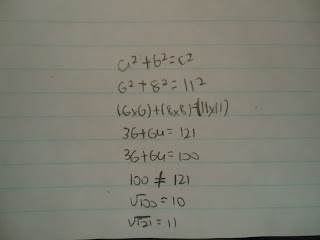 a²+b²=c²
6²+8²=11²
(6x6)+(8x8)=(11x11)
36+64=121
36+64=100
100≠121
√100=10
√121=11